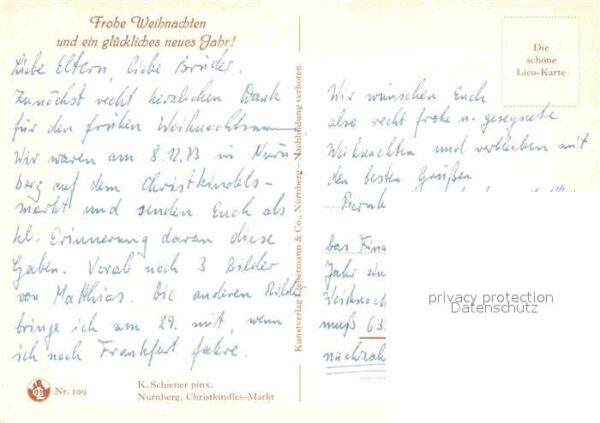 Frohe Weihnachten
und ein glückliches neues Jahr!
Liebe Eltern, liebe Brüder.
Zunächst recht herzlichen Dank
für den frühen Weihnachtsmann
Wir waren am 8.12.73 in Nürn
berg auf dem Christkindels-
markt und senden Euch als
kl. Erinnerung daran diese
Gaben. Vorab noch 3 Bilder
von Matthias. Die anderen Bilder
bringe ich am 29. mit, wenn
ich nach Frankfurt fahre.
Nr. 109
K. Schiener pinx.
Nürnberg, Christkindles-Markt
Kunstverlag Liebermann & Co., Nürnberg – Nachbildung verboten
Die
schöne
Lico-Karte
Wir wünschen Euch
also recht frohe u. gesegnete
Weihnachten und verbleiben mit
den besten Grüßen
das Fina
Jahr ein
Weihnach
muß 63
nachzah
privacy protection
Datenschutz